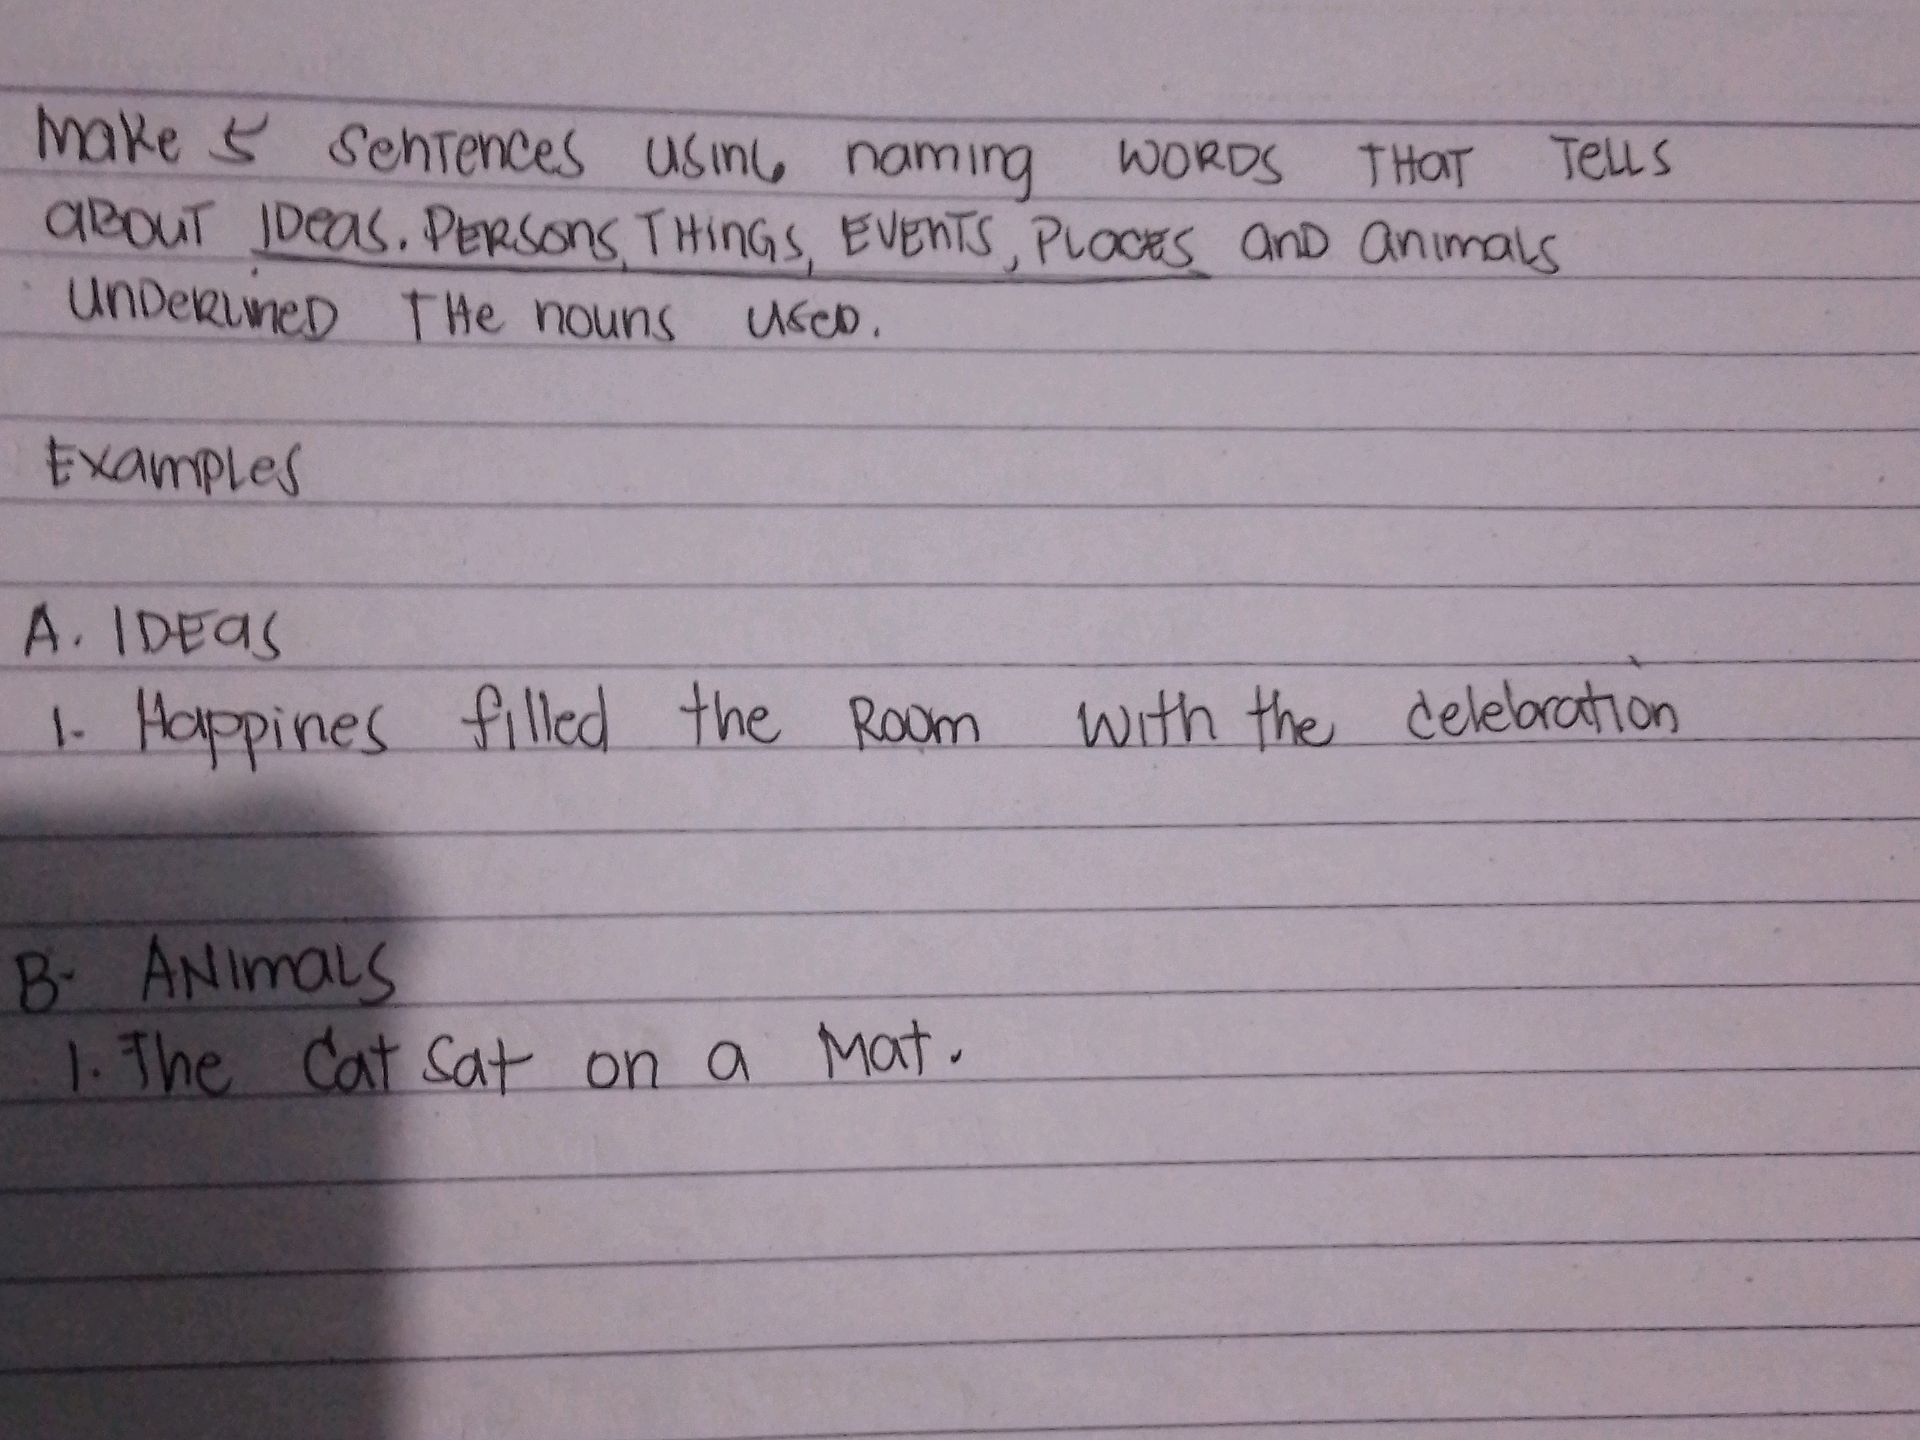 Make 5 Sentences using naming WORDS THAT TeLLS
ABOUT IDeas. PERSons, THinGS, EVEnTS, PLaCES anD animaLS
UnDeRLineD THe nouns useD.
ExamPLes
A. IDEas
1. Happines filled the Room with the celebration
B- ANImaLS
1. The Cat Sat on a Mat.